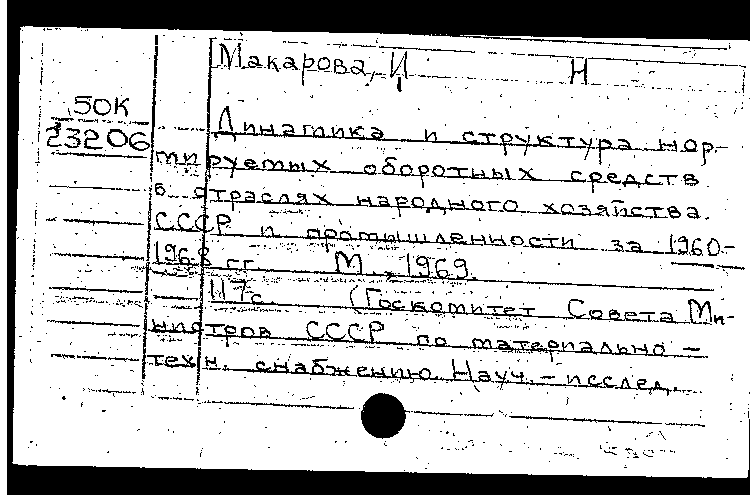 Макарова, И Н
50К
23206
Динамика и структура нор-
мируемых оборотных средств
в отраслях народного хозяйства
СССР и промышленности за 1960-
1968 гг. М., 1969.
117с. (Госкомитет Совета Ми-
нистров СССР по материально-
техн. снабжению. Науч.-исслед.